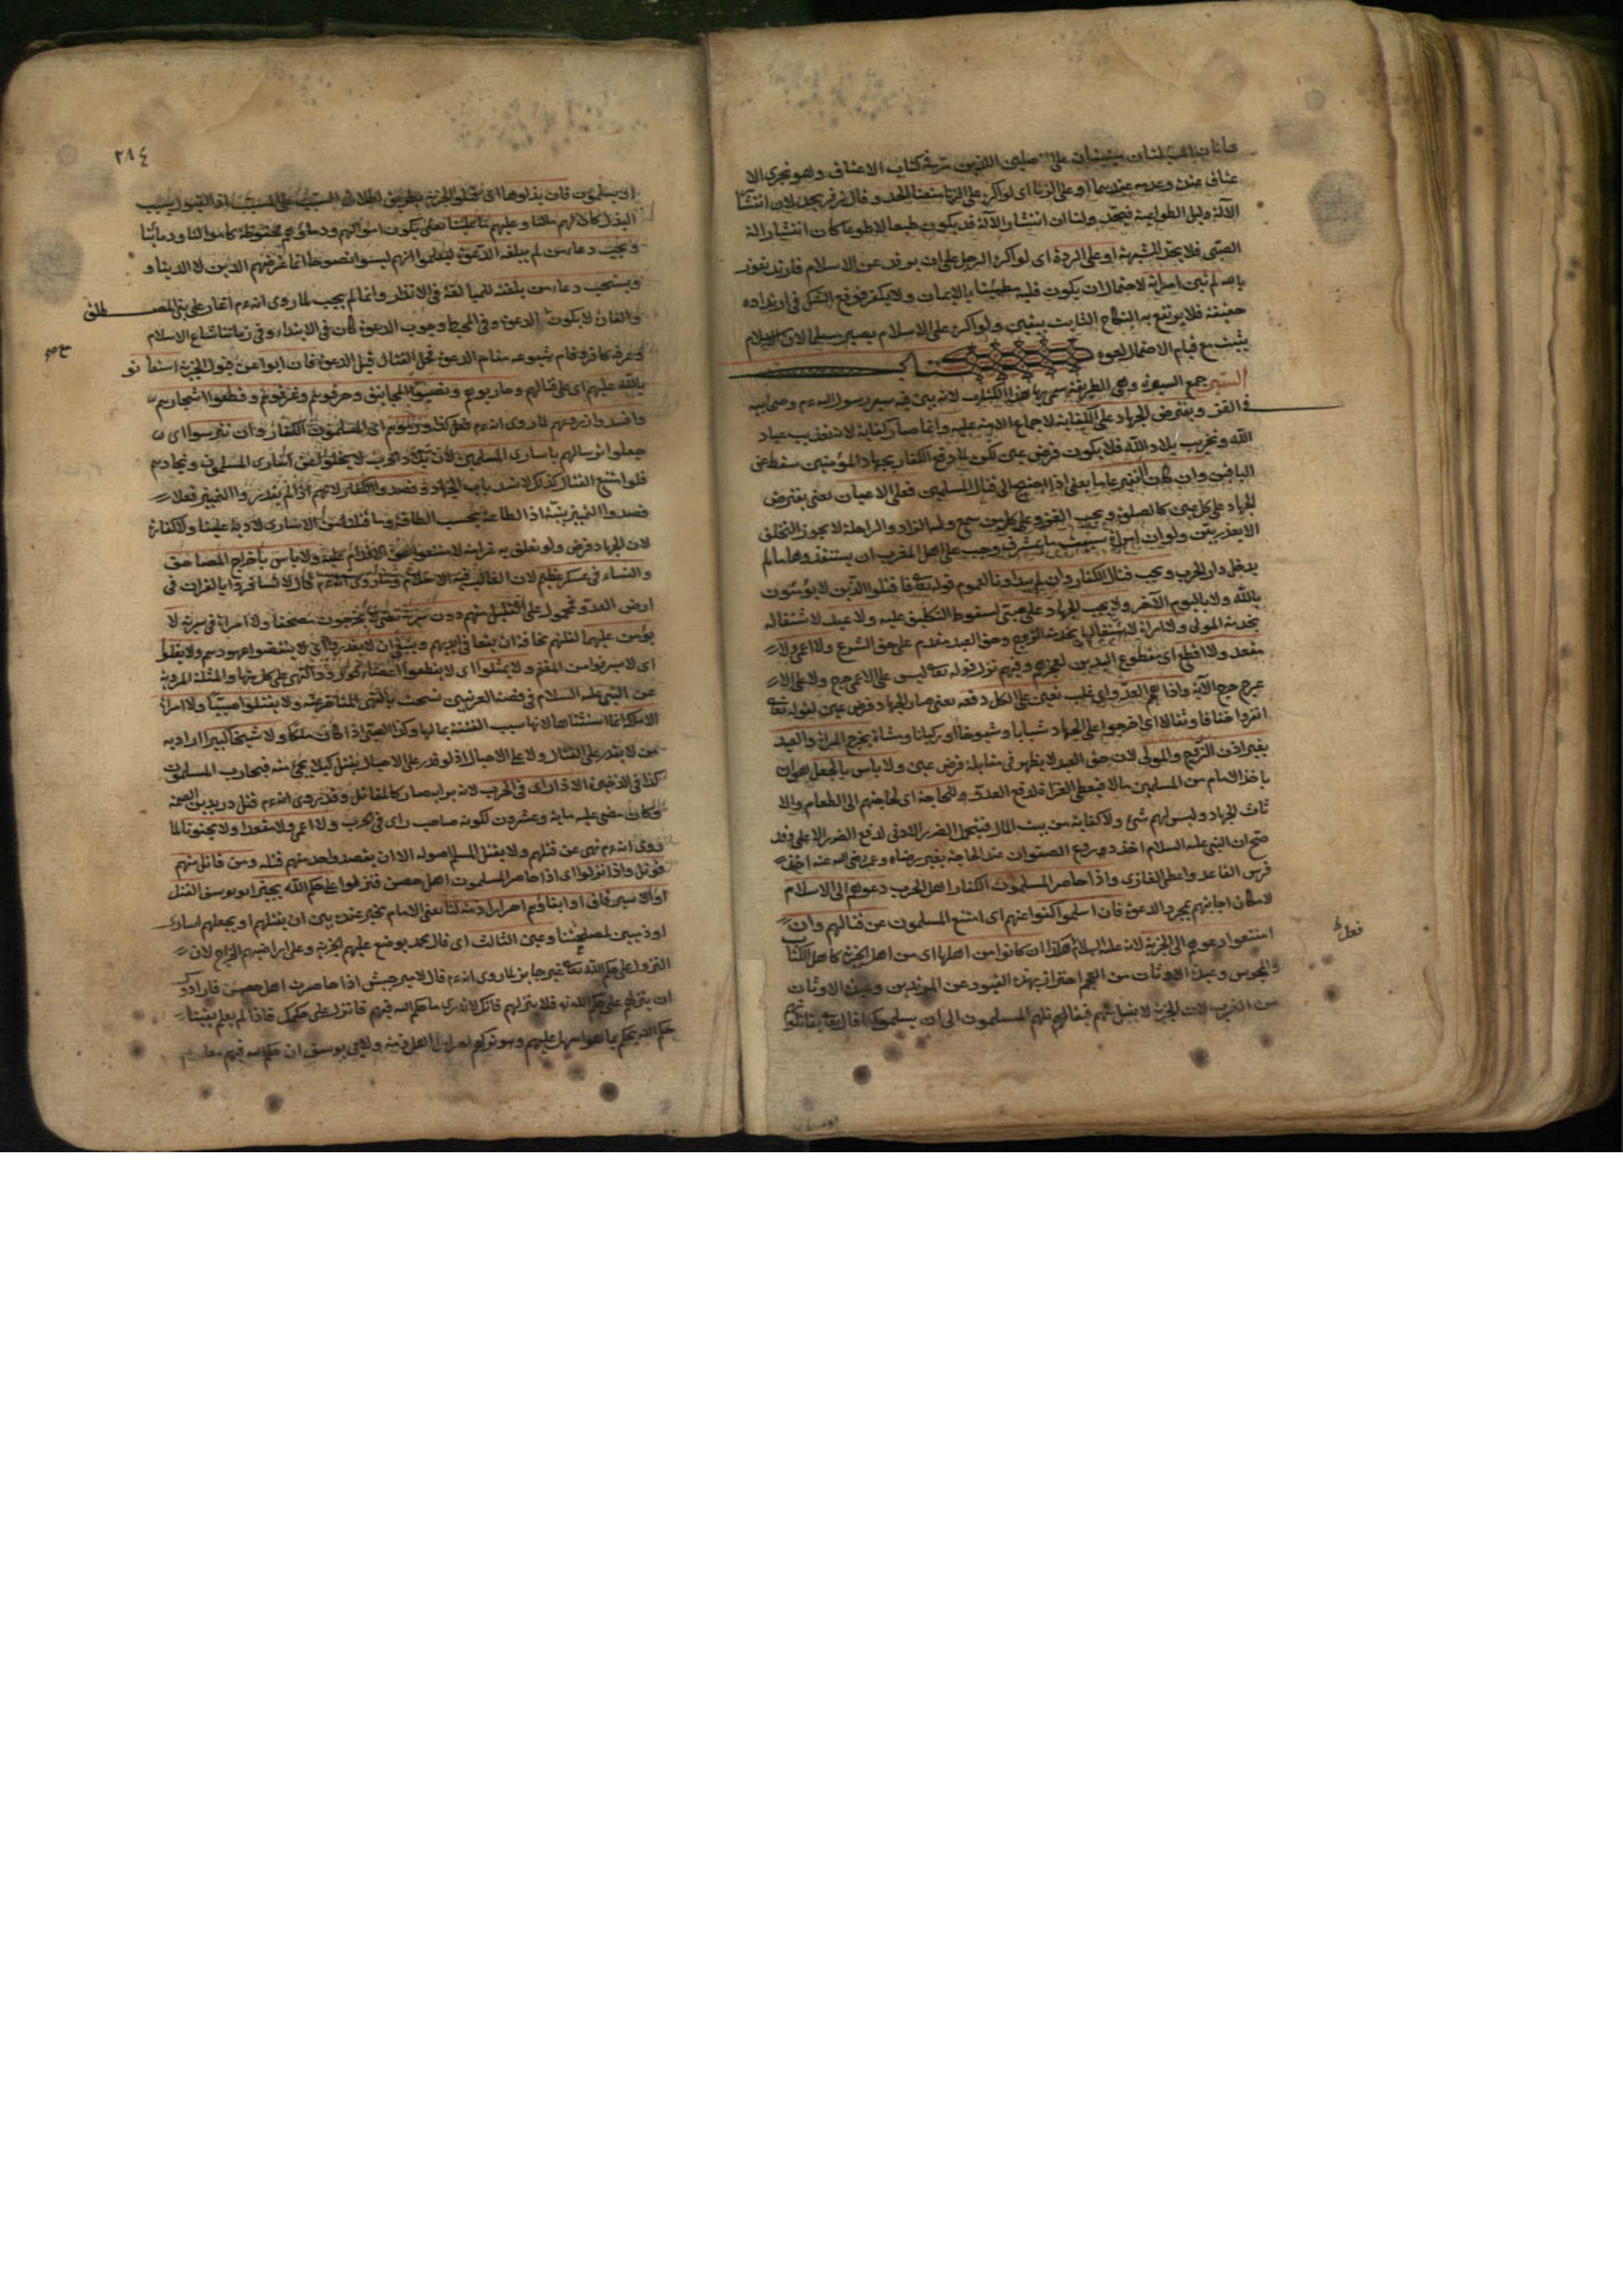 عتاق عنده وعدمه عندهما او على الزنا اى لو اكره على الزنا منعنا الحد وقال زفر يحد لان انتشار
الآلة دليل الطواعية فيحد ولنا ان انتشار الآلة قد يكون طبعا لا طوعا كان انتشار آلة
الصبى فلا يحد للشبهة او على الردة اى لو اكره الرجل على ان يرتد عن الاسلام فارتد نعوذ
بالله لم تبن امراته لاحتمال ان يكون قلبه مطمئنا بالايمان ولا يكفر فوقع الشك فى ارتداده
حقيقة فلا يرتفع به النكاح الثابت بيقين ولو اكره على الاسلام يصير مسلما لان الاسلام
يثبت مع قيام الاحتمال
السير جمع السيرة وهى الطريقة سمى بها هذا الكتاب لانه يبين فيه سير رسول الله ءم وصحابيه
فى الغزو ويفترض الجهاد على الكفاية لاجماع الامة عليه وانما صار كفاية لانه تعذيب عباد
الله وتخريب بلاد الله فلا يكون فرض عين لكن لما دفع الكفار بجهاد المؤمنين سقط عن
الباقين وان كان النفير عاما يعنى اذا احتيج الى قتال المسلمين فعلى الاعيان يعنى يفترض
الجهاد على كل عين كالصلوة ويجب الغزو على كل من سمع وله الزاد والراحلة لا يجوز التخلف
الا بعذر بين ولو ان امراة سبيت بالمشرق وجب على اهل المغرب ان يستنقذوها مالم
يدخل دار الحرب ويجب قتال الكفار وان لم يبداونا لعموم قوله تعا قاتلوا الذين لا يؤمنون
بالله ولا باليوم الآخر ولا يجب الجهاد على صبى لسقوط التكليف عليه ولا عبد لاشتغاله
بخدمة المولى ولا امراة لاشتغالها بخدمة الزوج وحق العبد مقدم على حق الشرع ولا اعمى ولا
مقعد ولا اقطع اى مقطوع اليدين لعجزهم وفيهم نزل قوله تعا ليس على الاعمى حرج ولا على الا
عرج حرج الآية واذا هجم العدو اى غلب تعين على الكل دفعه يعنى صار الجهاد فرض عين لقوله تعا
انفروا خفافا وثقالا اى اخرجوا على الجهاد شبابا وشيوخا او ركبانا ومشاة يخرج المراة والعبد
بغير اذن الزوج والمولى لان حق العبد لا يظهر فى مقابلة فرض عين ولا باس بالجعل هو ان
ياخذ الامام من المسلمين مالا فيعطى الغزاة لدفع العدو وللحاجة اى لحاجتهم الى الطعام والا
ثاث للجهاد وليس لهم شئ ولا كفاية من بيت المال فيتحمل الضرر الادنى لدفع الضرر الاعلى وقد
صح ان النبى عليه السلام اخذ دروع الصفوان عند الحاجة بغير رضاه وعمر رضى الله عنه اخذ
فرس القاعد واعطى الغازى واذا حاصر المسلمون الكفار اهل الحرب دعوهم الى الاسلام
لامكان اجابتهم بمجرد الدعوة فان اسلموا كفوا عنهم اى امتنع المسلمون عن قتالهم وان
امتنعوا دعوهم الى الجزية لانه عليه السلام هكذا ان كانوا من اهلها اى من اهل الجزية كاهل الكتاب
فعل
والمجوس وعبدة الاوثان من العجم احترز بهذه القيود عن المرتدين وعبدة الاوثان
من العرب لان الجزية لا يقبل منهم فيقاتلهم المسلمون الى ان يسلموا قال تعا تقاتلونهم
٢٨٤
او يسلمون فان بذلوها اى قبلوا الجزية بطريق اطلاق المسبب على السبب اذ القبول سبب
البذل كان لهم مالنا وعليهم ما علينا يعنى يكون اموالهم ودماؤهم محفوظة كاموالنا ودمائنا
ويجب دعاء من لم يبلغه الدعوة ليعلموا انهم ليسوا لصوصا انما غرضهم الدين لا الدنيا و
ويستحب دعاء من بلغته للمبالغة فى الانظار وانما لم يجب لما روى انه ءم اغار على بنى المصطلق
والغارة لا يكون بالدعوة وفى المحيط وجوب الدعوة كان فى الابتداء وفى زماننا شاع الاسلام
بالله عليهم اى على قتالهم وحاربوهم ونصبوا المجانيق وحرقوهم وغرقوهم وقطعوا اشجارهم
وافسدوا زروعهم لما روى انه ءم فعل كذا ورموهم اى المسلمون الكفار وان تترسوا اى
جعلوا ترسالهم باسارى المسلمين لان تلك دار الحرب لا يخلو عن اسارى المسلمين وتجارهم
فلو امتنع القتال كذلك لانسد باب الجهاد وقصدوا الكفار لانهم اذا لم يقدروا التمييز فعلا
قصدوا التمييز نية اذ الطاعة بحسب الطاقة وما قتلنا من الاسارى لا دية علينا ولا كفارة
لان الجهاد فرض ولو تعلق به غرامة لامتنعوا عن الاقدام عليه ولا باس باخراج المصاحف
والنساء فى عسكر عظيم لان الغالب فيه السلامة وما روى انه ءم قال لا تسافروا بالقران فى
ارض العدو محمول على القليل منهم دون سرية يعنى لا يخرجون مصحفا ولا امراة فى سرية لا
يؤمن عليها لقلتهم مخافة ان يقعا فى ايديهم وينبغى ان لا يغدروا اى لا ينقضوا عهودهم ولا يغلوا
اى لا يسرقوا من المغنم ولا يمثلوا اى لا يقطعوا اعضاء لورود النهى على كل منها والمثلة المروية
عن النبى عليه السلام فى قصة العرنيين نسخت بالنهى المتاخر عنه ولا يقتلوا صبيا ولا امراة
الا ملكة انما استثناها لانها سبب الفتنة بمالها وكذا الصبى اذا كان ملكا ولا شيخا كبيرا اراد به
من لا يقدر على القتال ولا على الاحبال اذ لو قدر على الاحبال يقتل كيلا يجئ منه فيحارب المسلمون
كذا فى الذخيرة الا ذا راى فى الحرب لانه برايه صار كالمقاتل وقد روى انه ءم قتل دريد بن الصمة
وكان مضى عليه ماية وعشرون لكونه صاحب راى فى الحرب ولا اعمى ولا مقعدا ولا مجنونا لما
روى انه ءم نهى عن قتلهم ولا يقتل المسلم اصوله الا ان يقصد واحد منهم قتله ومن قاتل منهم
قوتل واذا نزلوا اى اذا حاصر المسلمون اهل حصن فنزلوا على حكم الله يجيز ابو يوسف القتل
او الاسير فاقى او ابقاؤهم احرارا ذمة لنا يعنى الامام يخير عنده بين ان يقتلهم او يجعلهم اسارى
او ذميين لمصلحتنا وعين الثالث اى قال محمد يوضع عليهم الجزية وعلى اراضيهم الخراج لان
النزول على حكم الله تعا غير جايز لما روى انه ءم قال لامير جيش اذا حاصرت اهل حصن فارادوك
ان ينزلهم على حكم الله فلا ينزلهم فانك لا تدرى ما حكم الله فيهم فانزله على حكمك فاذا لم يعلم يقينا
حكم الله يحكم بما هو اسهل عليهم وهو تركهم احرارا اهل ذمة ولابى يوسف ان حكم الله فيهم معلوم